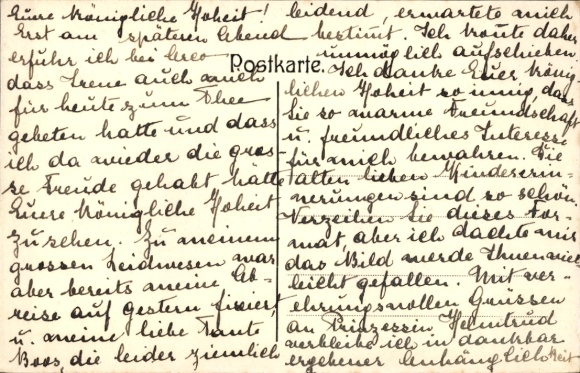 Euere königliche Hoheit!
Erst am späteren Abend
erfuhr ich bei
dass Irene auch mich
für heute zum Thee
gebeten hatte und dass
ich da wieder die gros-
se Freude gehabt hätte
Euere königliche Hoheit
zu sehen. Zu meinem
grossen Leidwesen war
aber bereits meine Ab-
reise auf gestern fixiert,
u. meine liebe Tante
Boos, die leider ziemlich
Postkarte.
leidend, erwartete mich
bestimt. Ich konte daher
unmöglich aufschieben.
Ich danke Euer könig-
lichen Hoheit so innig, dass
Sie so warme Freundschaft
u. freundliches Interesse
für mich bewahren. Die
alten lieben Kindererin-
nerungen sind so schön.
Verzeihen Sie dieses For-
mat, aber ich dachte mir
das Bild werde Ihnen viel-
leicht gefallen. Mit ver-
ehrungsvollen Grüssen
an Prinzessin Helmtrud
verbleibe ich in dankbar
ergebener Anhänglichkeit